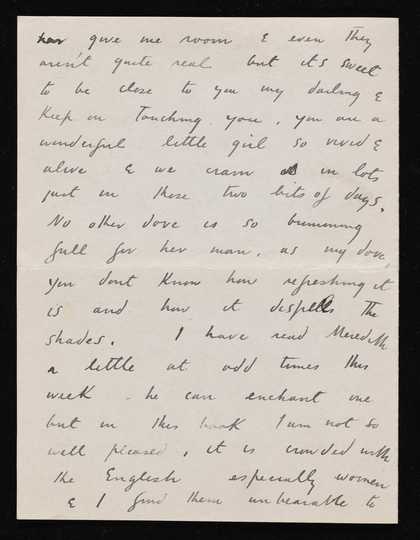 give me room & even they
aren't quite real but it's sweet
to be close to you my darling &
Keep on Touching you, you are a
wonderful little girl so vivid &
alive & we cram in lots
just in those two bits of days.
No other dove is so brimming
full for her man, as my dove,
you dont Know how refreshing it
is and how it dispells the
shades. I have read Meredith
a little at odd times this
week - he can enchant one
but in this book I am not so
well pleased, it is crowded with
the English especially women
& I find them unbearable to